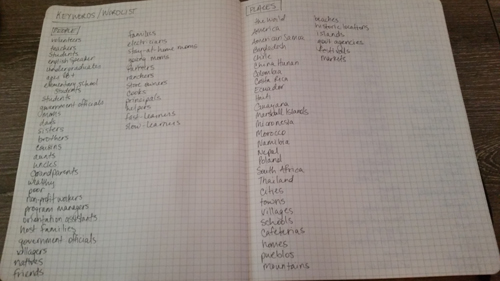 KEYWORDS / WORDLIST
PEOPLE
volunteers
teachers
Students
english speaker
undergraduates
ages 18+
elementary school
students
students
government officials
moms
dads
sisters
brothers
cousins
aunts
uncles
Grandparents
wealthy
poor
non-profit workers
program managers
orientation assistants
host families
government officials
villagers
natives
friends
families
electricians
stay-at-home moms
young moms
farmers
ranchers
store owners
cooks
principals
fast-learners
slow-learners
PLACES
the world
America
American Samoa
Bangladesh
Chile
China Hunan
Colombia
Costa Rica
Ecuador
Guyana
Marshall Islands
Micronesia
Morocco
Namibia
Nepal
Poland
South Africa
Thailand
Cities
towns
villages
schools
Cafeterias
homes
pueblos
mountains
beaches
islands
markets